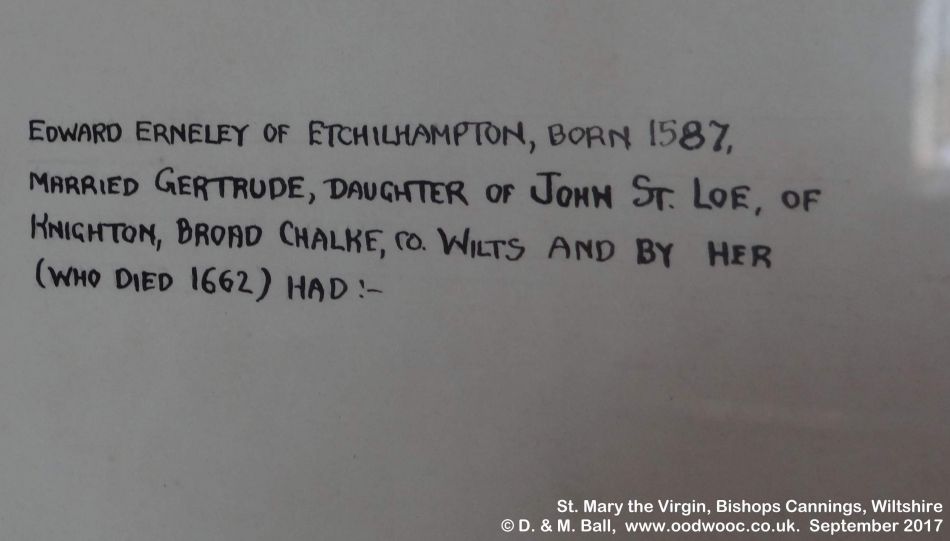 EDWARD ERNELEY OF ETCHILHAMPTON, BORN 1587,
MARRIED GERTRUDE, DAUGHTER OF JOHN ST. LOE, OF
KNIGHTON, BROAD CHALKE, CO. WILTS AND BY HER
(WHO DIED 1662) HAD :-
St. Mary the Virgin, Bishops Cannings, Wiltshire
© D. & M. Ball, www.oodwooc.co.uk. September 2017